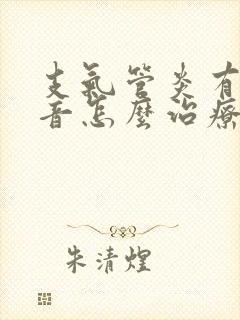 支氣管炎有
音怎麼治療
朱清煌